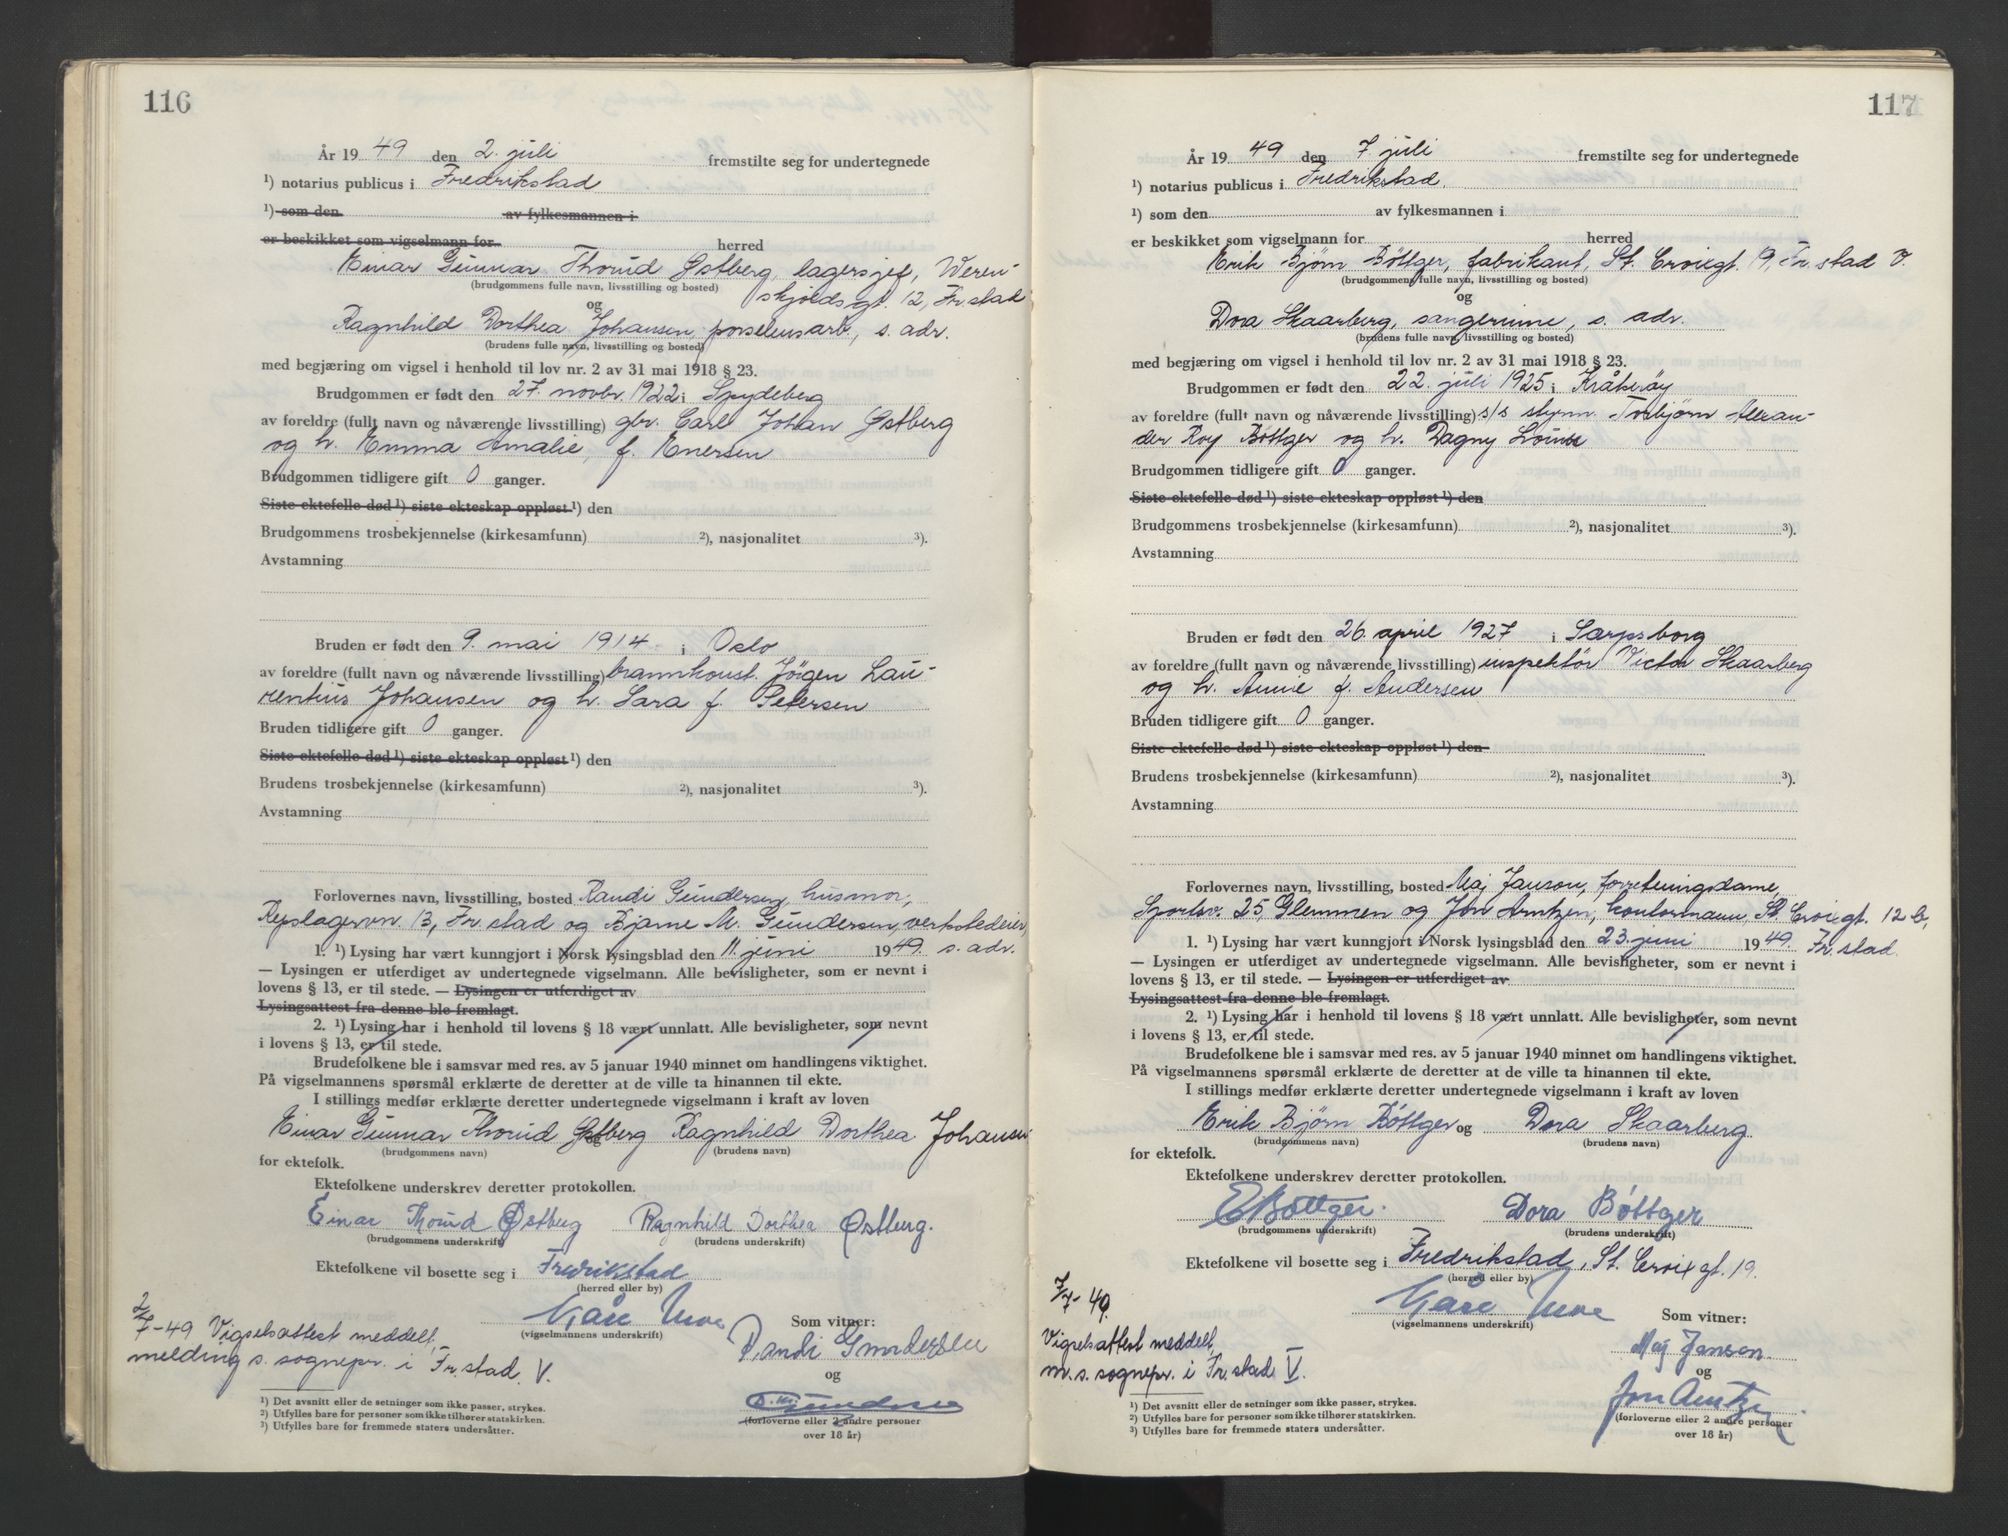 116
År 19 49 den 2. juli fremstilte seg for undertegnede
¹) notarius publicus i Fredrikstad
¹) som den av fylkesmannen i
er beskikket som vigselmann for herred
Einar Gunnar Thorud Østberg, lagersjef, Weren-
(brudgommens fulle navn, livsstilling og bosted) skjoldsgt. 12, Fr.stad
og
Ragnhild Dorthea Johansen, porselensarb., s. adr.
(brudens fulle navn, livsstilling og bosted)
med begjæring om vigsel i henhold til lov nr. 2 av 31 mai 1918 § 23.
Brudgommen er født den 27. novbr. 1922 i Spydeberg
av foreldre (fullt navn og nåværende livsstilling) gbr. Carl Johan Østberg
og h. Emma Amalie, f. Enersen
Brudgommen tidligere gift 0 ganger.
Siste ektefelle død ¹) siste ekteskap oppløst ¹) den
Brudgommens trosbekjennelse (kirkesamfunn) ²), nasjonalitet ³).
Avstamning
Bruden er født den 9. mai 1914 i Oslo
av foreldre (fullt navn og nåværende livsstilling) brannkonst. Jörgen Lau-
rentius Johansen og h. Sara f. Petersen
Bruden tidligere gift 0 ganger.
Siste ektefelle død ¹) siste ekteskap oppløst ¹) den
Brudens trosbekjennelse (kirkesamfunn) ²), nasjonalitet ³).
Avstamning
Forlovernes navn, livsstilling, bosted Randi Gundersen, husmor,
Repslagervn. 13, Fr.stad og Bjarne M. Gundersen, verkstedeier,
1. ¹) Lysing har vært kunngjort i Norsk lysingsblad den 11. juni 1949. s. adr.
— Lysingen er utferdiget av undertegnede vigselmann. Alle bevisligheter, som er nevnt i
lovens § 13, er til stede. — Lysingen er utferdiget av
Lysingsattest fra denne ble fremlagt.
2. ¹) Lysing har i henhold til lovens § 18 vært unnlatt. Alle bevisligheter, som nevnt
i lovens § 13, er til stede.
Brudefolkene ble i samsvar med res. av 5 januar 1940 minnet om handlingens viktighet.
På vigselmannens spørsmål erklærte de deretter at de ville ta hinannen til ekte.
I stillings medfør erklærte deretter undertegnede vigselmann i kraft av loven
Einar Gunnar Thorud Østberg Ragnhild Dorthea Johansen
(brudgommens navn) (brudens navn)
for ektefolk.
Ektefolkene underskrev deretter protokollen.
Einar Thorud Østberg Ragnhild Dorthea Østberg.
(brudgommens underskrift) (brudens underskrift)
Ektefolkene vil bosette seg i Fredrikstad
(herred eller by)
Kåre Moe
(vigselmannens underskrift)
Som vitner:
2/7-49 Vigselsattest meddelt,
melding s. sognepr. i Fr.stad. V.
Randi Gundersen
og
Gundersen
(forloverne eller 2 andre personer
over 18 år)
¹) Det avsnitt eller de setninger som ikke passer, strykes.
²) Utfylles bare for personer som ikke tilhører statskirken.
³) Utfylles bare for fremmede staters undersåtter.
117
År 19 49 den 7. juli fremstilte seg for undertegnede
¹) notarius publicus i Fredrikstad.
¹) som den av fylkesmannen i
er beskikket som vigselmann for herred
Erik Bjørn Böttger, fabrikant, St. Croixgt. 19, Fr.stad V.
(brudgommens fulle navn, livsstilling og bosted)
og
Dora Skaarberg, sangerinne, s. adr.
(brudens fulle navn, livsstilling og bosted)
med begjæring om vigsel i henhold til lov nr. 2 av 31 mai 1918 § 23.
Brudgommen er født den 22. juli 1925 i Kråkeröy
av foreldre (fullt navn og nåværende livsstilling) s/s styrm. Torbjörn Alexan-
der Roy Böttger og h. Dagny Louise
Brudgommen tidligere gift 0 ganger.
Siste ektefelle død ¹) siste ekteskap oppløst ¹) den
Brudgommens trosbekjennelse (kirkesamfunn) ²), nasjonalitet ³).
Avstamning
Bruden er født den 26. april 1927 i Sarpsborg
av foreldre (fullt navn og nåværende livsstilling) inspektör Victor Skaarberg
og h. Annie f. Andersen
Bruden tidligere gift 0 ganger.
Siste ektefelle død ¹) siste ekteskap oppløst ¹) den
Brudens trosbekjennelse (kirkesamfunn) ²), nasjonalitet ³).
Avstamning
Forlovernes navn, livsstilling, bosted Maj Janson, forretningsdame,
Sportsv. 25, Glemmen og Jon Arntzen, kontormann, St. Croixgt. 12 b,
1. ¹) Lysing har vært kunngjort i Norsk lysingsblad den 23. juni 1949. Fr.stad.
— Lysingen er utferdiget av undertegnede vigselmann. Alle bevisligheter, som er nevnt i
lovens § 13, er til stede. — Lysingen er utferdiget av
Lysingsattest fra denne ble fremlagt.
2. ¹) Lysing har i henhold til lovens § 18 vært unnlatt. Alle bevisligheter, som nevnt
i lovens § 13, er til stede.
Brudefolkene ble i samsvar med res. av 5 januar 1940 minnet om handlingens viktighet.
På vigselmannens spørsmål erklærte de deretter at de ville ta hinannen til ekte.
I stillings medfør erklærte deretter undertegnede vigselmann i kraft av loven
Erik Bjørn Böttger og Dora Skaarberg
(brudgommens navn) (brudens navn)
for ektefolk.
Ektefolkene underskrev deretter protokollen.
E Bøttger. Dora Bøttger
(brudgommens underskrift) (brudens underskrift)
Ektefolkene vil bosette seg i Fredrikstad, St. Croix gt. 19.
(herred eller by)
Kåre Moe
(vigselmannens underskrift)
Som vitner:
7/7-49.
Vigselsattest meddelt,
m. s. sognepr. i Fr.stad V.
Maj Janson.
og
Jon Arntzen
(forloverne eller 2 andre personer
over 18 år)
¹) Det avsnitt eller de setninger som ikke passer, strykes.
²) Utfylles bare for personer som ikke tilhører statskirken.
³) Utfylles bare for fremmede staters undersåtter.